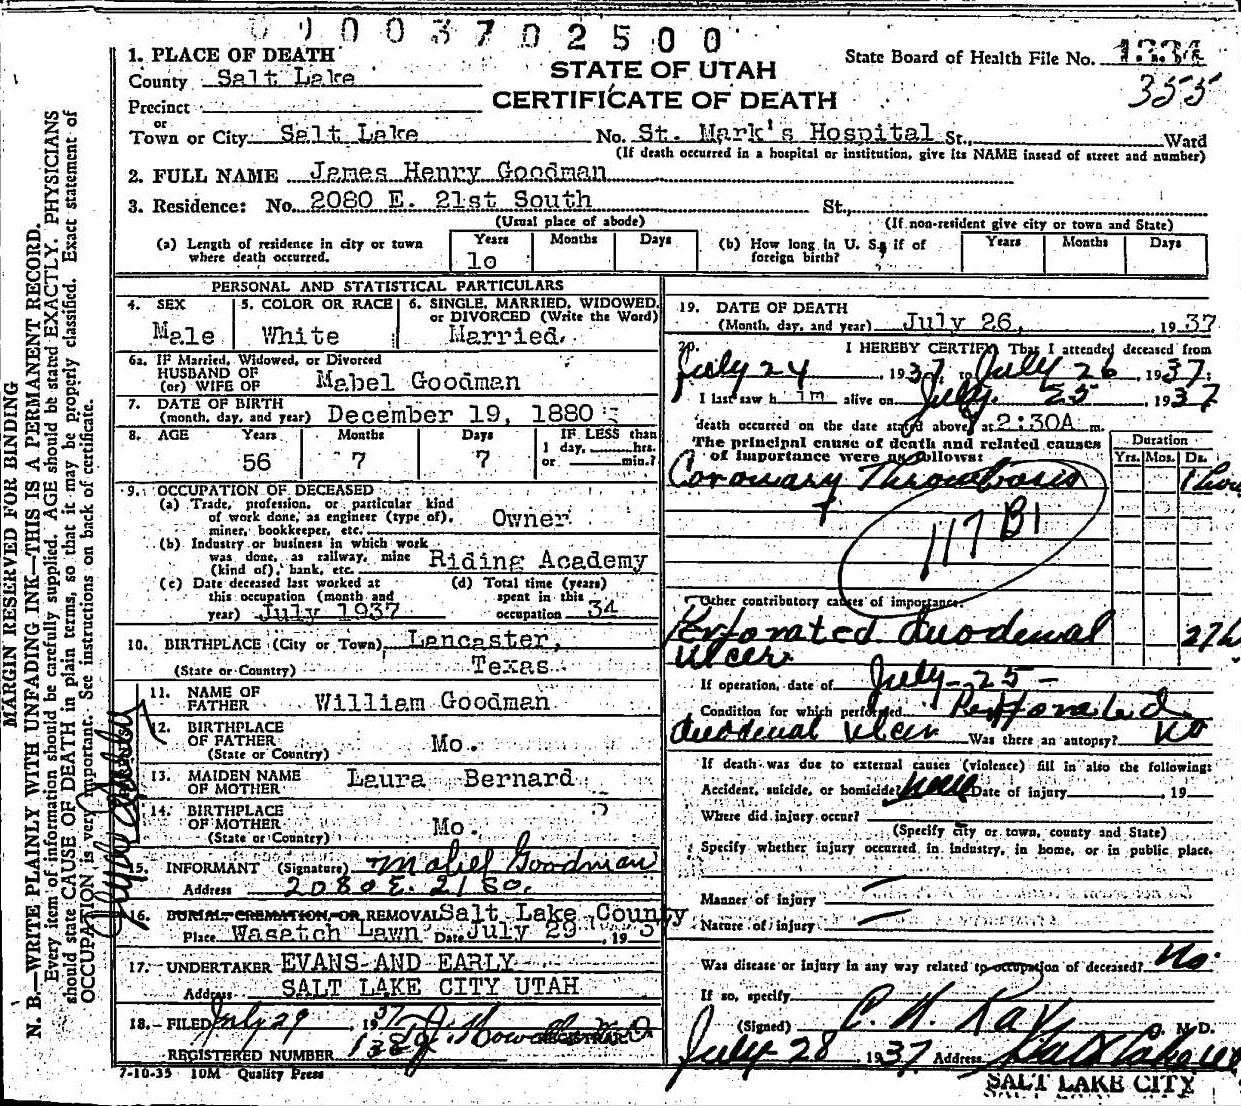 003702500
1. PLACE OF DEATH
County Salt Lake
STATE OF UTAH
State Board of Health File No. 1334
355
Precinct
CERTIFICATE OF DEATH
or
Town or City Salt Lake No. St. Mark's Hospital St., Ward
(If death occurred in a hospital or institution, give its NAME insead of street and number)
2. FULL NAME James Henry Goodman
3. Residence: No. 2080 E. 21st South St.,
(Usual place of abode) (If non-resident give city or town and State)
(a) Length of residence in city or town where death occurred. Years Months Days
10
(b) How long in U. S., if of foreign birth? Years Months Days
PERSONAL AND STATISTICAL PARTICULARS
4. SEX 5. COLOR OR RACE 6. SINGLE, MARRIED, WIDOWED, or DIVORCED (Write the Word)
Male White Married.
6a. IF Married, Widowed, or Divorced
HUSBAND OF
(or) WIFE OF Mabel Goodman
7. DATE OF BIRTH
(month, day, and year) December 19, 1880
8. AGE Years Months Days IF LESS than
1 day, hrs.
or min.?
56 7 7
9. OCCUPATION OF DECEASED
(a) Trade, profession, or particular kind
of work done, as engineer (type of),
miner, bookkeeper, etc. Owner
(b) Industry or business in which work
was done, as railway, mine
(kind of), bank, etc. Riding Academy
(c) Date deceased last worked at
this occupation (month and
year) July 1937
(d) Total time (years)
spent in this
occupation 34
10. BIRTHPLACE (City or Town) Lancaster,
(State or Country) Texas
11. NAME OF
FATHER William Goodman
12. BIRTHPLACE
OF FATHER Mo.
(State or Country)
13. MAIDEN NAME
OF MOTHER Laura Bernard
14. BIRTHPLACE
OF MOTHER Mo.
(State or Country)
15. INFORMANT (Signature) Mabel Goodman
Address 2080 E. 21 So.
16. BURIAL, CREMATION, OR REMOVAL Salt Lake County
Place Wasatch Lawn Date July 29, 193
17. UNDERTAKER EVANS AND EARLY
Address SALT LAKE CITY UTAH
18. FILED July 29, 1937
REGISTRAR
REGISTERED NUMBER
7-10-35 10M Quality Press
19. DATE OF DEATH
(Month, day, and year) July 26, 1937
20. I HEREBY CERTIFY That I attended deceased from
July 24, 1937, to July 26, 1937;
I last saw him alive on July 25 1937
death occurred on the date stated above, at 2:30A m.
The principal cause of death and related causes
of importance were as follows:
Duration
Yrs. Mos. Ds.
Coronary Thrombosis 1 hour
117 B1
Other contributory causes of importance:
Perforated duodenal 27 h
ulcer
If operation, date of July-25-
Condition for which performed Perforated
duodenal ulcer Was there an autopsy? no
If death was due to external causes (violence) fill in also the following:
Accident, suicide, or homicide? Date of injury 19
Where did injury occur?
(Specify city or town, county and State)
Specify whether injury occurred in industry, in home, or in public place.
Manner of injury
Nature of injury
Was disease or injury in any way related to occupation of deceased? No.
If so, specify
(Signed) C. H. Ray M. D.
July 28, 1937 Address Salt Lake
SALT LAKE CITY
MARGIN RESERVED FOR BINDING
N. B.—WRITE PLAINLY WITH UNFADING INK—THIS IS A PERMANENT RECORD.
Every item of information should be carefully supplied. AGE should be stated EXACTLY. PHYSICIANS
should state CAUSE OF DEATH in plain terms, so that it may be properly classified. Exact statement of
OCCUPATION is very important. See instructions on back of certificate.